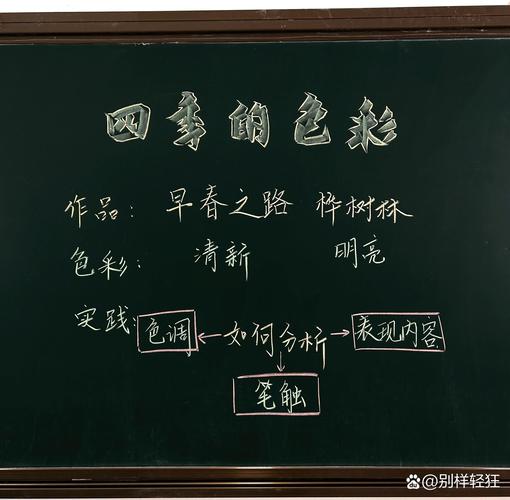 四季的色彩
作品：早春之路 桦树林
色彩：清新 明亮
实践：色调 ← 如何分析 → 表现内容
↓
笔触
@别样轻狂